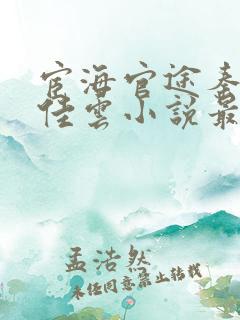 宦海官途秦
佳雲小說最
孟浩然
未经同意禁止转载